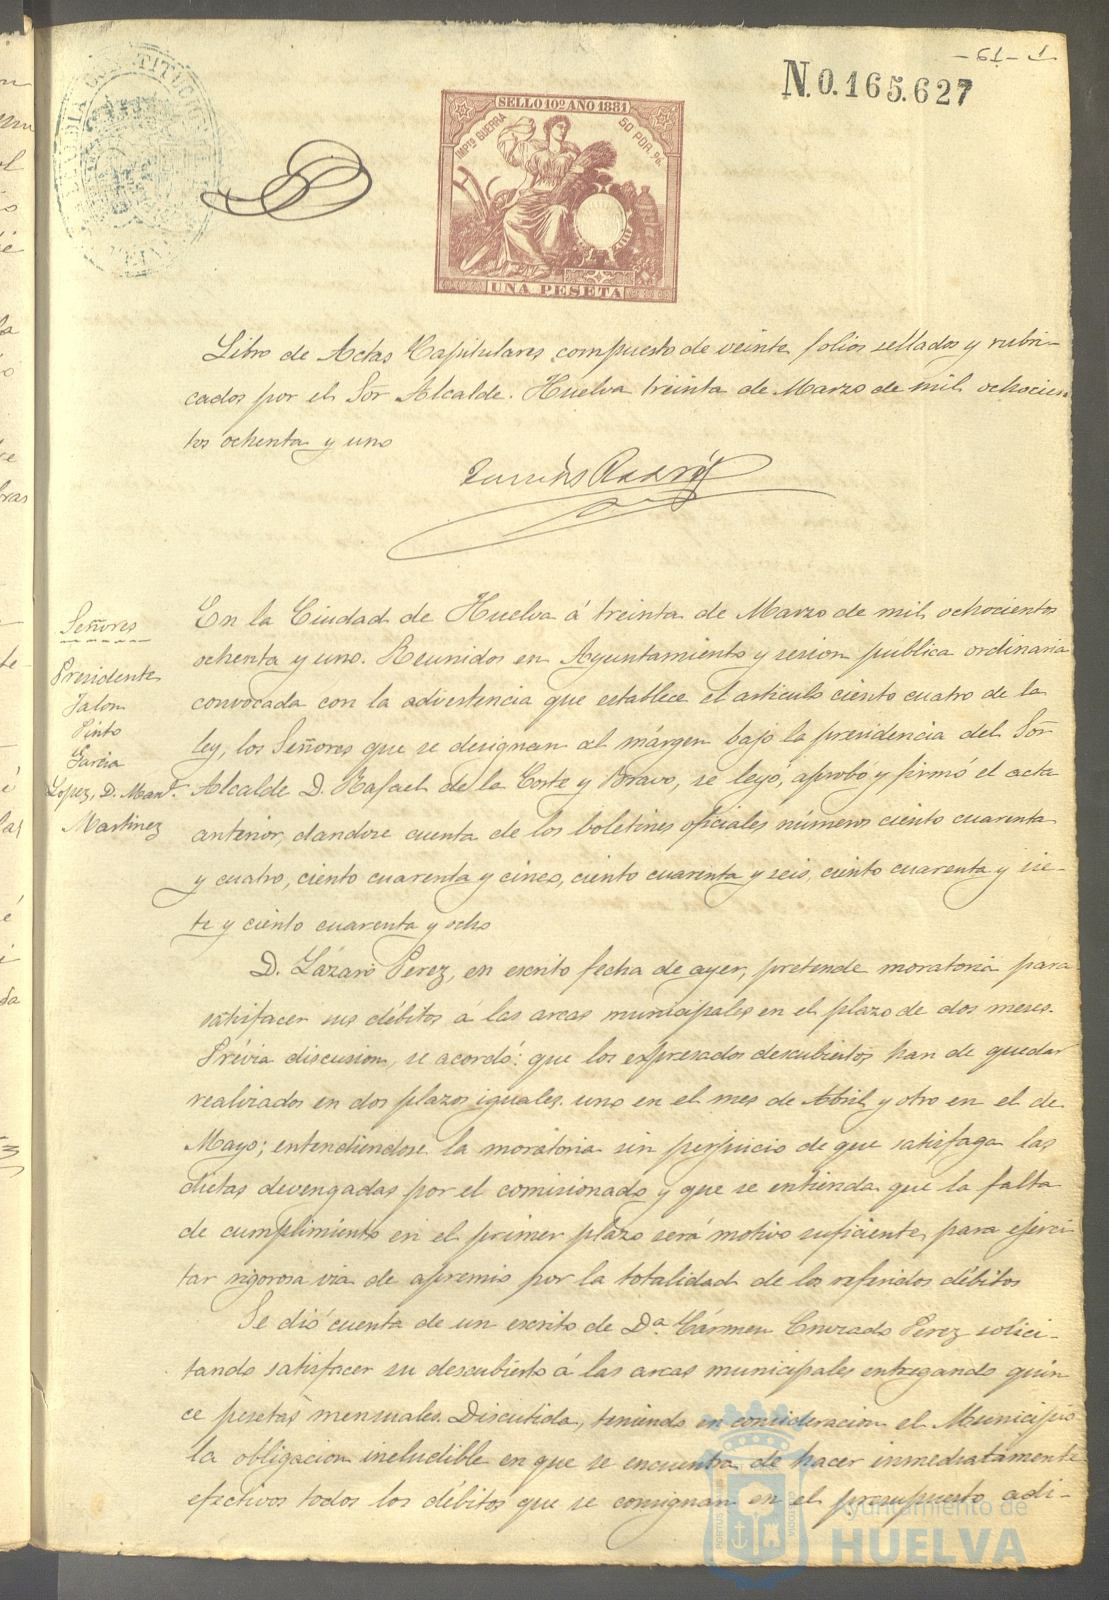 -61- 1
N.0.165.627
SELLO 10º AÑO 1881
IMPtº GUERRA 50 POR %
UNA PESETA
Libro de Actas Capitulares compuesto de veinte folios sellados y rubri-
cados por el Sor Alcalde. Huelva treinta de Marzo de mil ochocien-
tos ochenta y uno
Señores
Presidente
Jalon
Pinto
Garcia
Lopez, D. Manl.
Martinez
En la Ciudad de Huelva á treinta de Marzo de mil ochocientos
ochenta y uno. Reunidos en Ayuntamiento y sesion pública ordinaria
convocada con la advertencia que establece el articulo ciento cuatro de la
ley, los Señores que se designan al márgen bajo la presidencia del Sor
Alcalde D. Rafael de la Corte y Bravo, se leyó, aprobó y firmó el acta
anterior, dandose cuenta de los boletines oficiales números ciento cuarenta
y cuatro, ciento cuarenta y cinco, ciento cuarenta y seis, ciento cuarenta y sie-
te y ciento cuarenta y ocho
D. Lázaro Perez, en escrito fecha de ayer, pretende moratoria para
satisfacer sus débitos á las arcas municipales en el plazo de dos meses.
Prévia discusion, se acordó: que los expresados descubiertos han de quedar
realizados en dos plazos iguales. uno en el mes de Abril y otro en el de
Mayo; entendiendose la moratoria sin perjuicio de que satisfaga las
dietas devengadas por el comisionado y que se entienda que la falta
de cumplimiento en el primer plazo será motivo suficiente para ejerci-
tar rigorosa via de apremio por la totalidad de los referidos débitos
Se dió cuenta de un escrito de Da. Cármen Cruzado Perez solici-
tando satisfacer su descubierto á las arcas municipales entregando quin
ce pesetas mensuales. Discutida, teniendo en consideracion el Municipio
la obligacion ineludible en que se encuentra de hacer inmediatamente
efectivos todos los débitos que se consignan en el presupuesto adi-
Ayuntamiento de
HUELVA